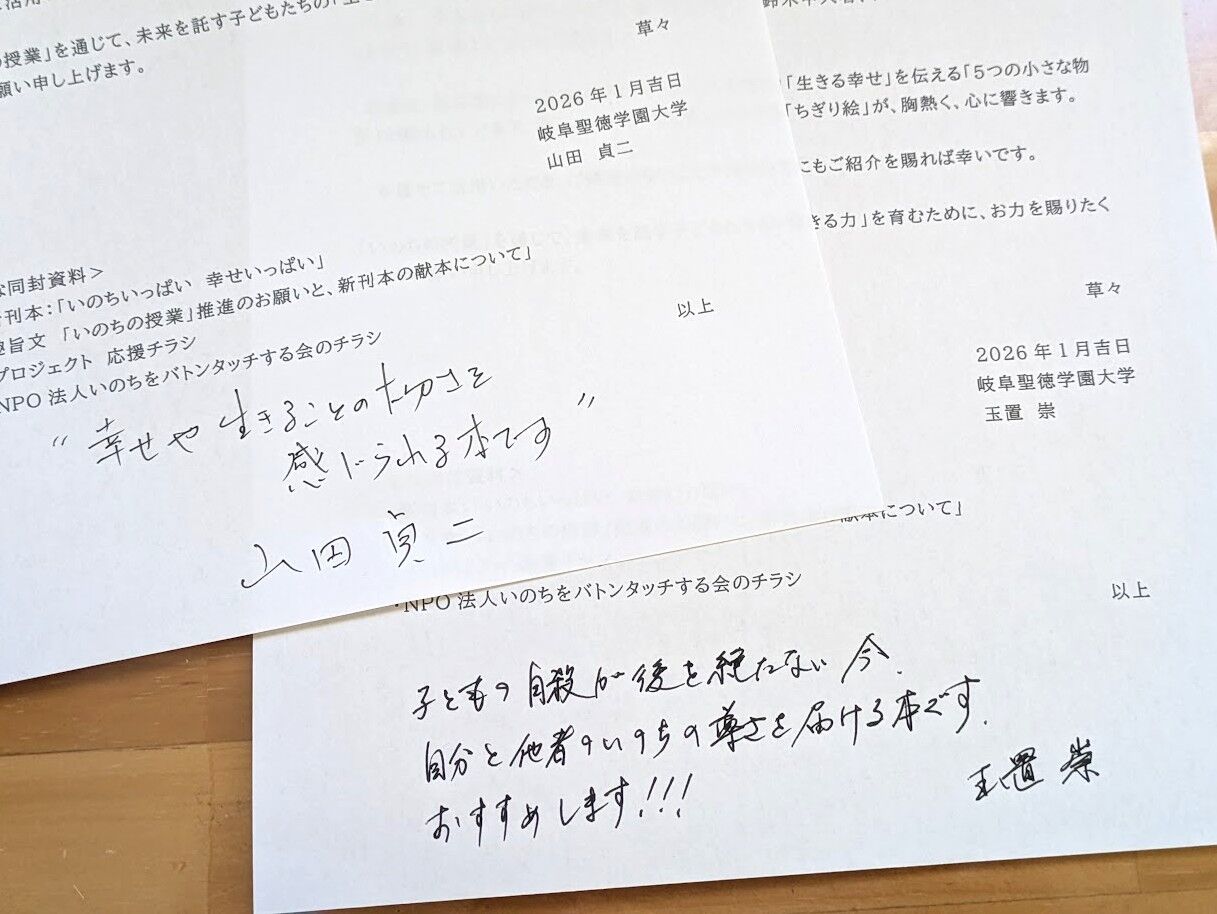 の授業」を通じて、未来を託す子どもたちの「
願い申し上げます。
草々
2026年1月吉日
岐阜聖徳学園大学
山田 貞二
な同封資料＞
新刊本：「いのちいっぱい 幸せいっぱい」
趣旨文 「いのちの授業」推進のお願いと、新刊本の献本について」
プロジェクト 応援チラシ
NPO法人いのちをバトンタッチする会のチラシ
以上
“幸せや生きることの大切さを
感じられる本です”
山田 貞二
「生きる幸せ」を伝える「5つの小さな物
「ちぎり絵」が、胸熱く、心に響きます。
にもご紹介を賜れば幸いです。
きる力」を育むために、お力を賜りたく
草々
2026年1月吉日
岐阜聖徳学園大学
玉置 崇
献本について」
・NPO法人いのちをバトンタッチする会のチラシ
以上
子どもの自殺が後を絶たない今、
自分と他者のいのちの尊さを届ける本です。
おすすめします!!!
玉置 崇